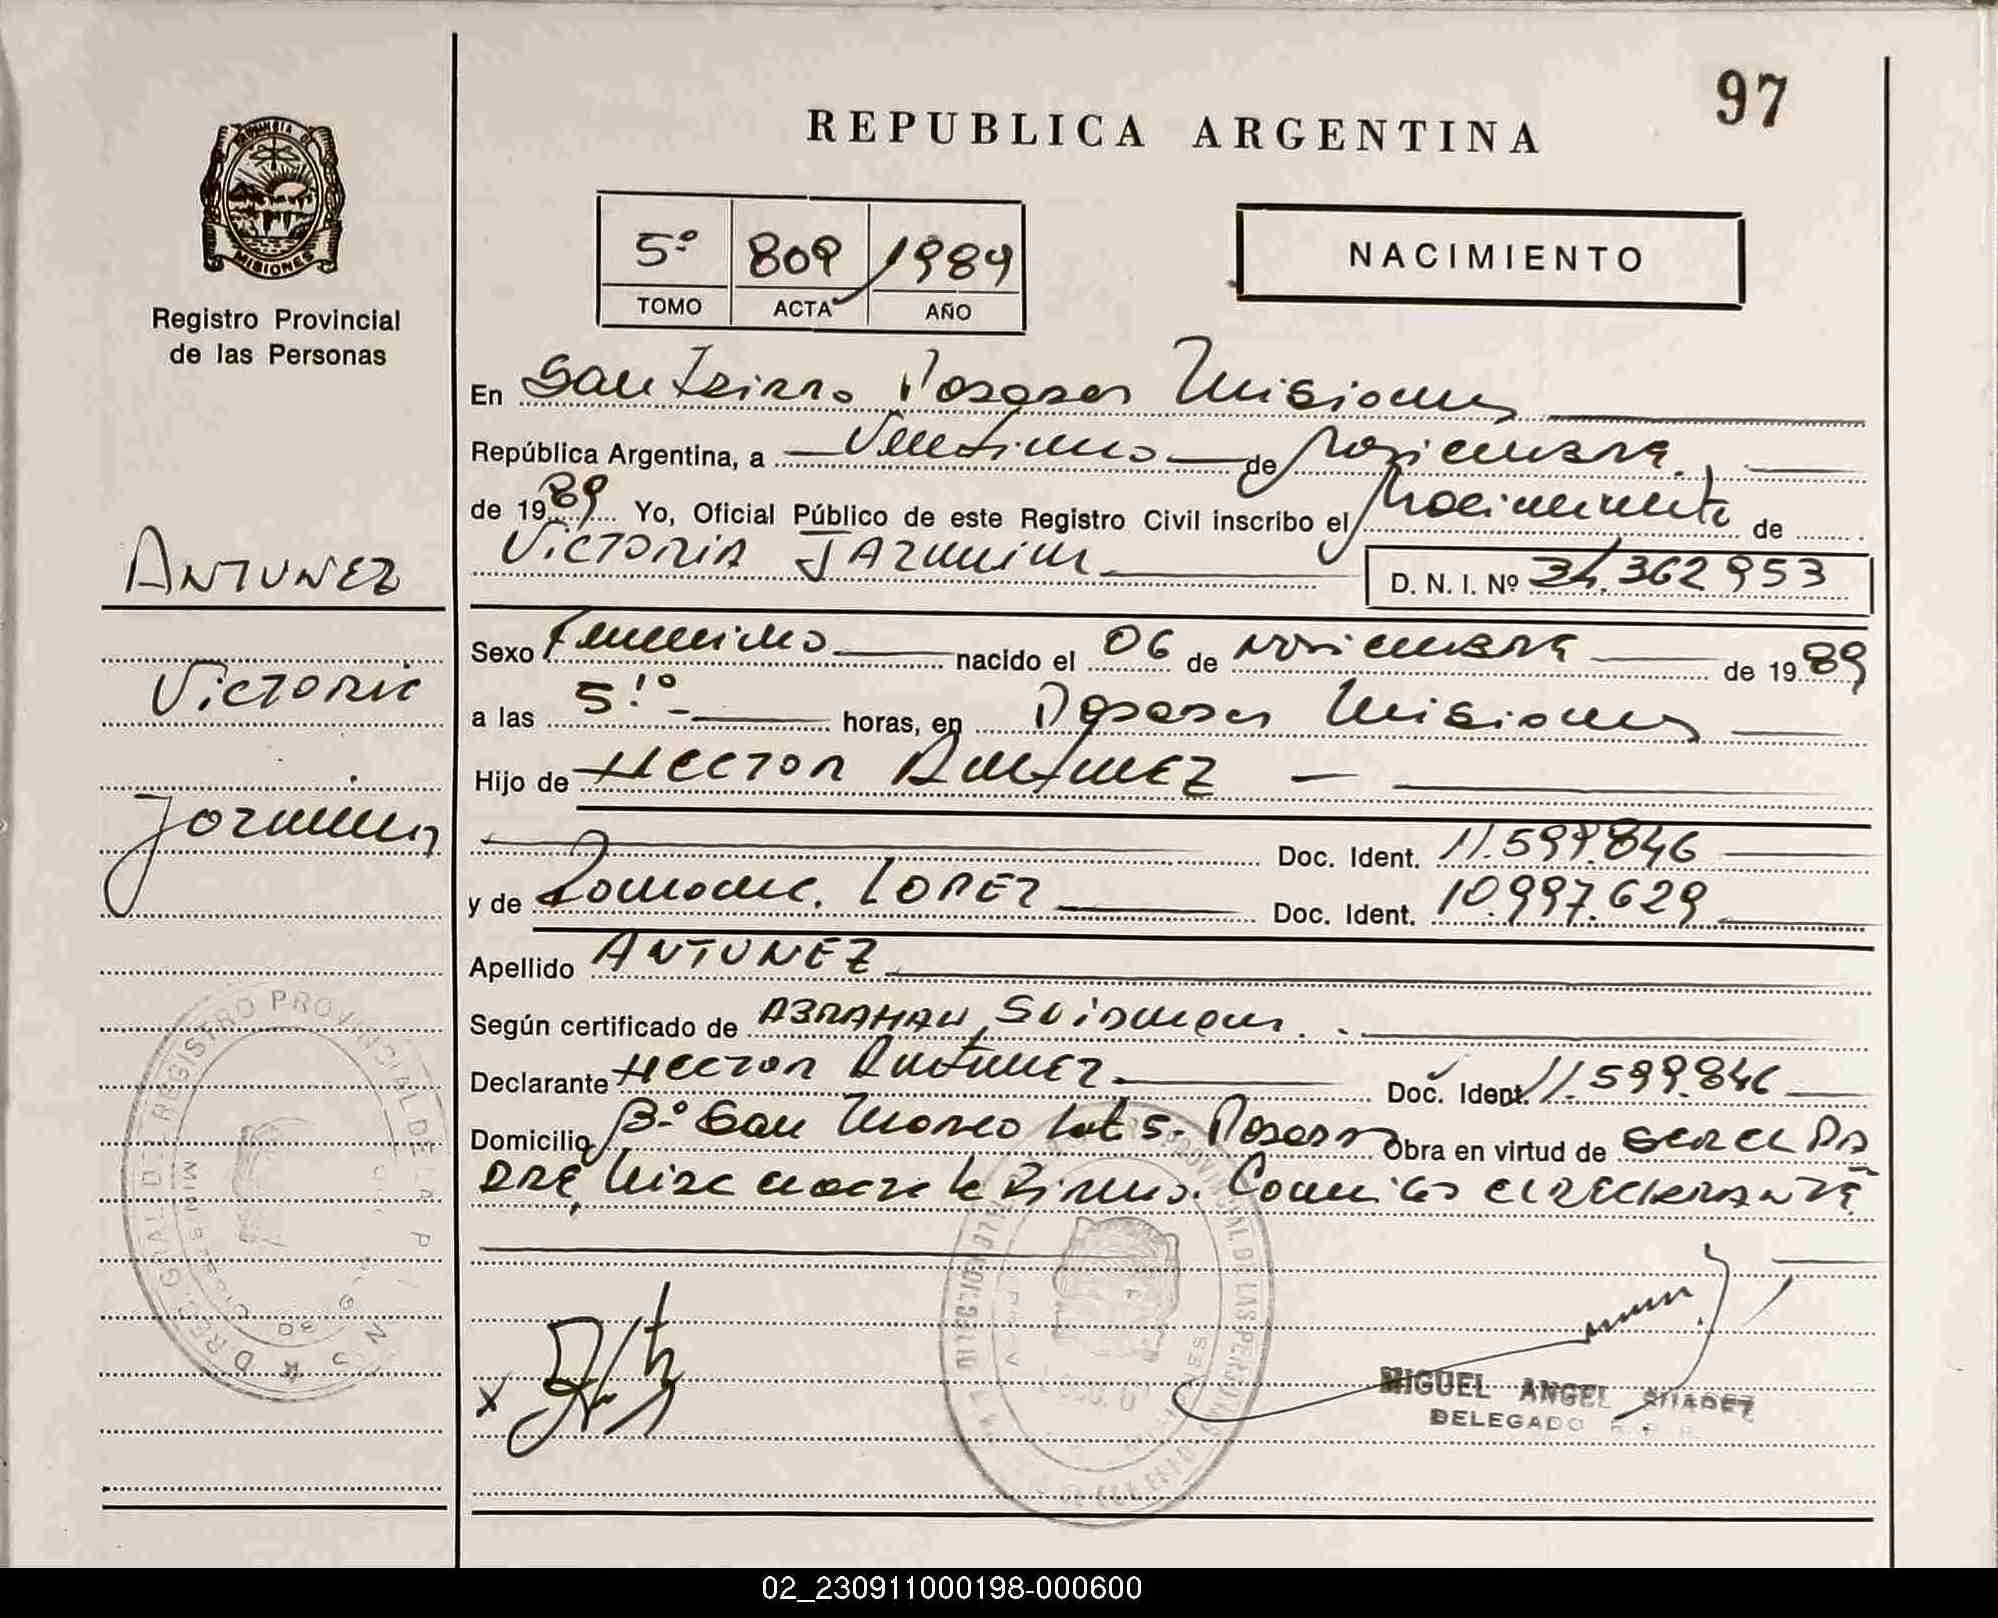 97
REPUBLICA ARGENTINA
PROVINCIA DE
MISIONES
Registro Provincial
de las Personas
5º 809 1989
TOMO ACTA AÑO
NACIMIENTO
En San Isidro Posadas Misiones
República Argentina, a Veintiuno de Noviembre
de 1989 Yo, Oficial Público de este Registro Civil inscribo el Nacimiento de
Victoria Jazmin
D. N. I. Nº 34.362953
ANTUNEZ
Victoria
Jazmin
Sexo Femenino nacido el 06 de Noviembre de 1989
a las 5:º horas, en Posadas Misiones
Hijo de Hector Antunez
Doc. Ident. 11.599.846
y de Ramona LOPEZ Doc. Ident. 10.997.629
Apellido ANTUNEZ
Según certificado de ABRAHAN
Declarante Hector Antunez Doc. Ident. 11.599.846
Domicilio Bº San Lot 5. Posadas Obra en virtud de ser el Pa
dre, el declarante
X
MIGUEL ANGEL SUAREZ
DELEGADO R. P. P.
REGISTRO PROVINCIAL DE LAS PERSONAS
02_230911000198-000600